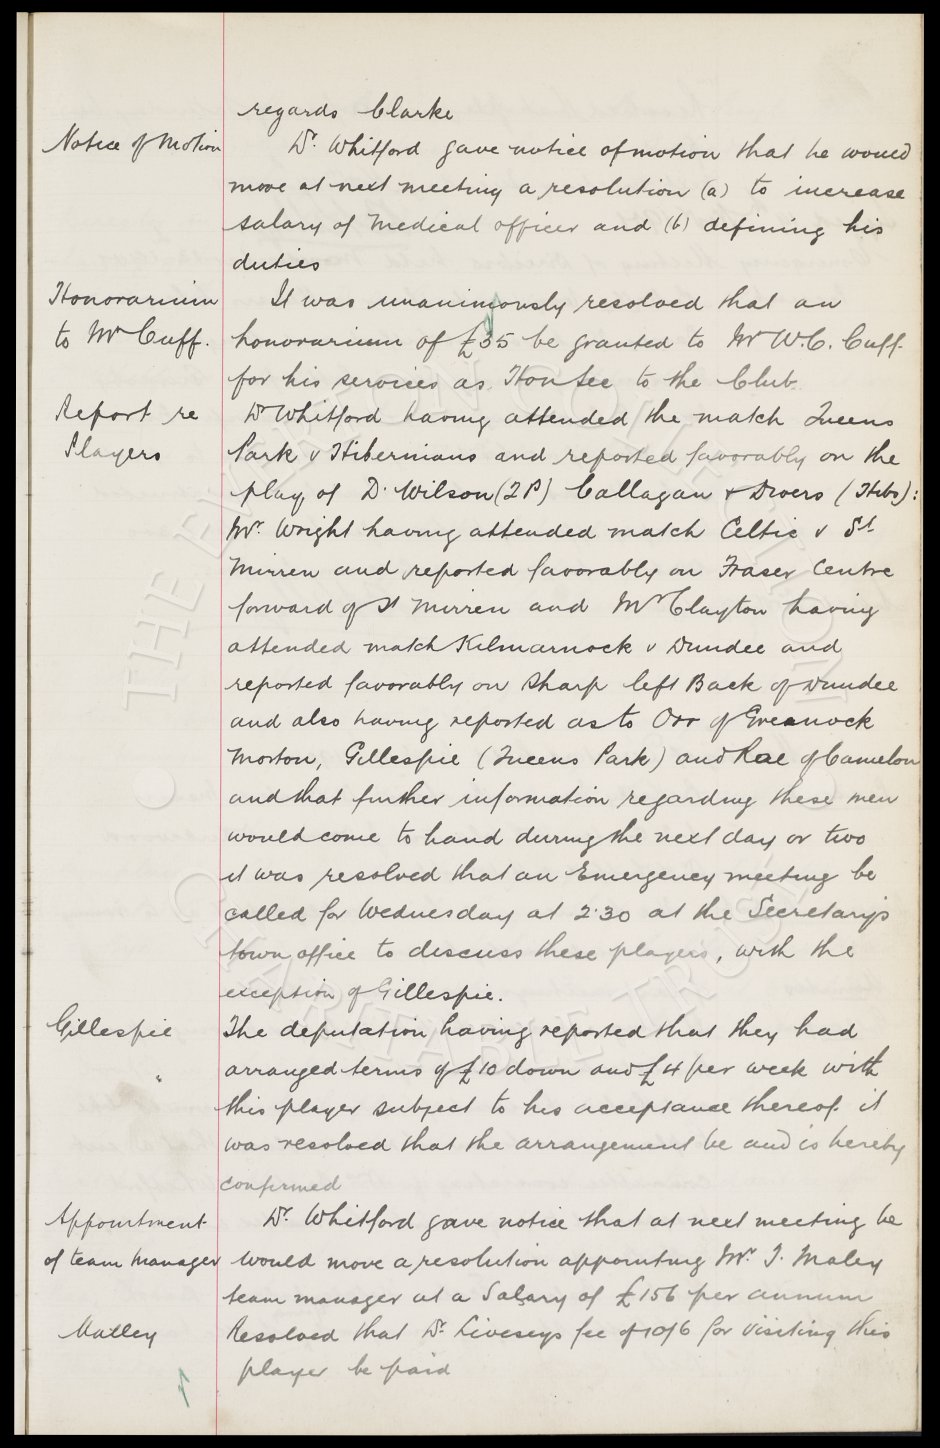 regards Clarke
Notice of Motion
Dr. Whitford gave notice of motion that he would
move at next meeting a resolution (a) to increase
salary of Medical officer and (b) defining his
duties
Honorarium
to Mr Cuff.
It was unanimously resolved that an
honorarium of £35 be granted to Mr W.C. Cuff.
for his services as Hon Sec to the Club.
Report re
Players
Dr Whitford having attended the match Queens
Park v Hibernians and reported favorably on the
play of D. Wilson (QP) Callagan & Divers (Hibs):
Mr. Wright having attended match Celtic v St
Mirren and reported favorably on Fraser Centre
forward of St Mirren and Mr Clayton having
attended match Kilmarnock v Dundee and
reported favorably on Sharp left Back of Dundee
and also having reported as to Orr of Greenock
Morton, Gillespie (Queens Park) and Rae of Camelon
and that further information regarding these men
would come to hand during the next day or two
it was resolved that an Emergency meeting be
called for Wednesday at 2.30 at the Secretary's
town office to discuss these players, with the
exception of Gillespie.
Gillespie
The deputation having reported that they had
arranged terms of £10 down and £4 per week with
this player subject to his acceptance thereof it
was resolved that the arrangement be and is hereby
confirmed
Appointment
of team Manager
Dr. Whitford gave notice that at next meeting he
would move a resolution appointing Mr. T. Maley
team manager at a Salary of £156 per annum
Maxley
Resolved that Dr. Livesey's fee of 10/6 for visiting this
player be paid